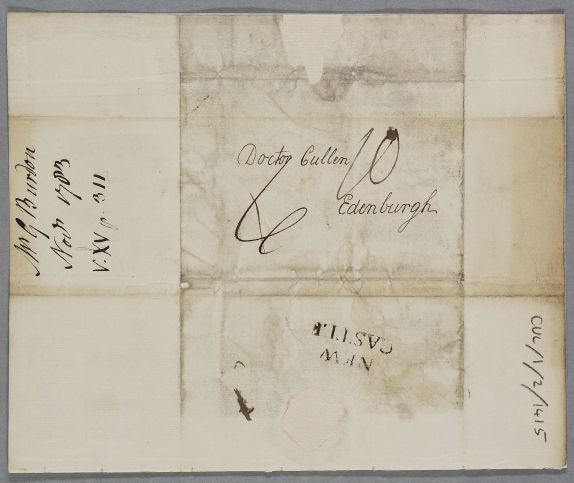 Mr G Burdon
Novr 1783
V. XV p. 311
Doctor Cullen
Edenburgh
NEW
CASTLE
CUL/1/2/1415